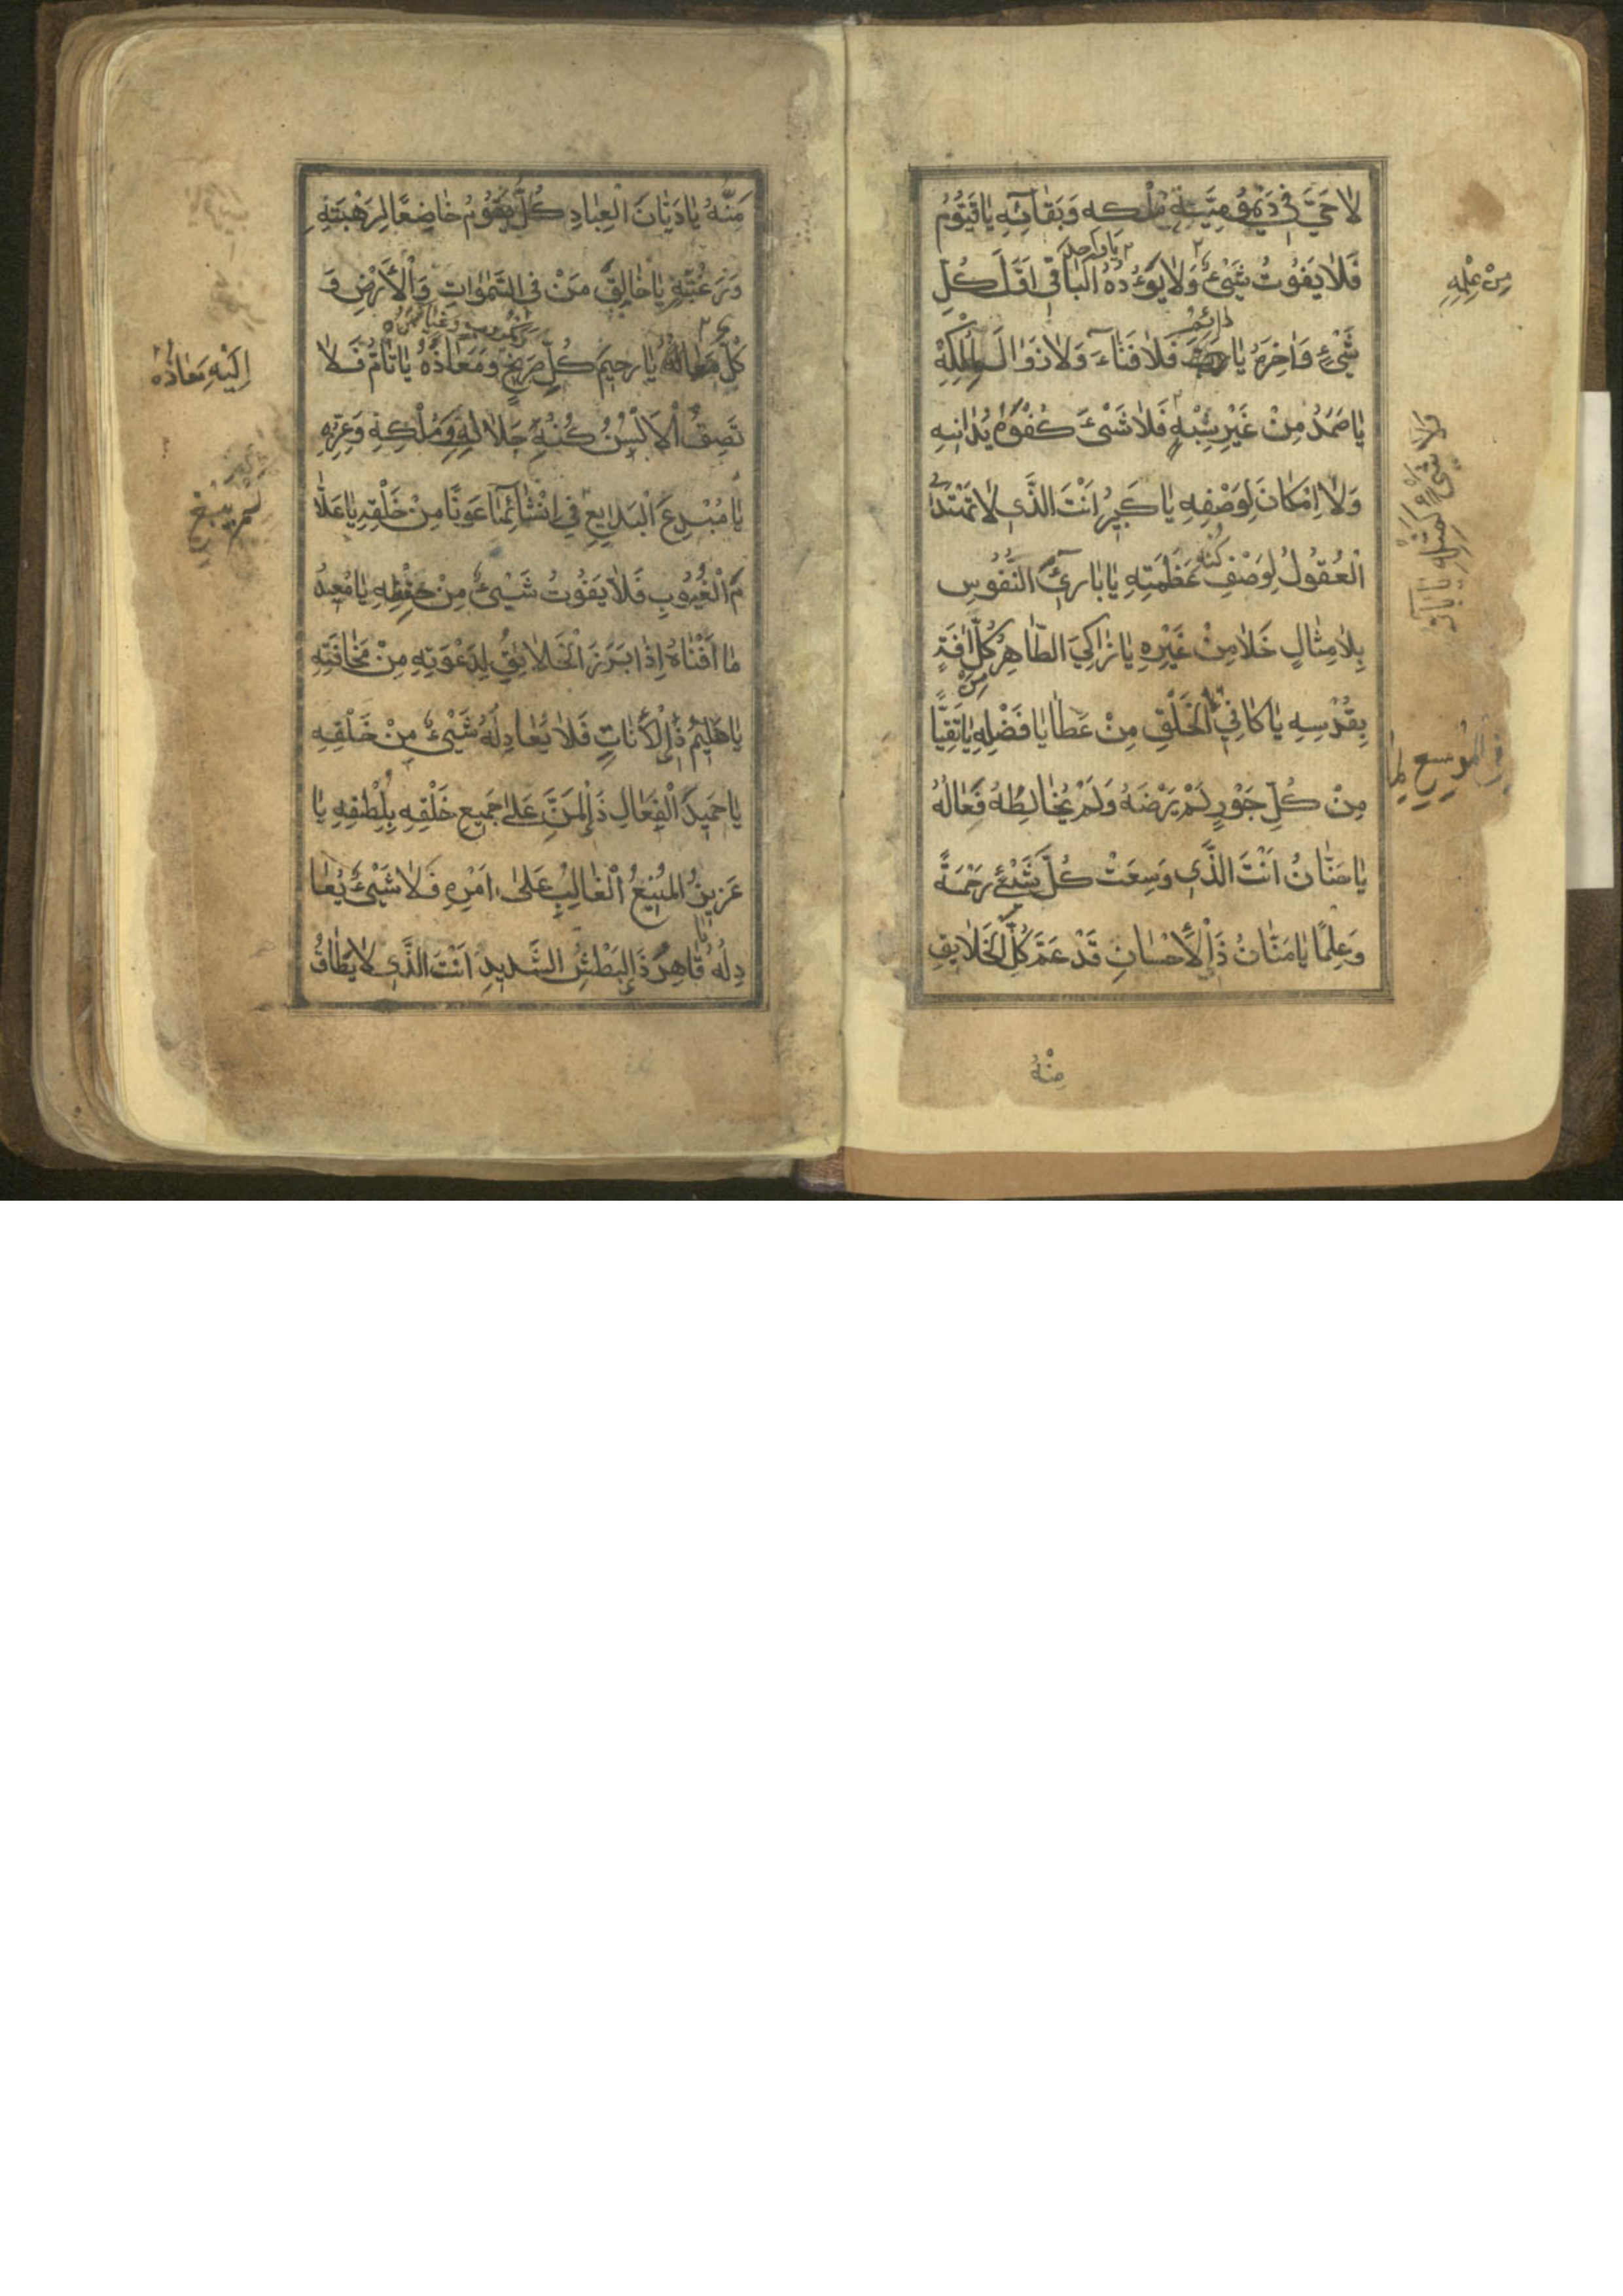 لاٰ حَيَّ فِي دَيْمُومِيَّةِ مُلْكِه وَبَقٰائِهِ يٰا قَيُّومُ
فَلاٰ يَفُوتُ شَيْئٌ وَلاٰ يَؤُدُهُ الْبٰاقِي اَوَّلَ كُلِّ
يٰا وٰاحِدُ
مِنْ عِلْمِهِ
شَيْءٍ وَاٰخِرَهُ يٰا فَلاٰ فَنٰاءَ وَلاٰ زَوٰالَ لِمُلْكِهِ
دٰائِمُ
يٰا صَمَدُ مِنْ غَيْرِ شِبْهٍ فَلاٰ شَيْئَ كُفْوُهُ يُدٰانِيهِ
وَلاٰ اِمْكٰانَ لِوَصْفِهِ يٰا كَبِيرُ اَنْتَ الَّذِي لاٰ تَهْتَدِي
فَلاٰ شَيْءَ كَمِثْلِهِ يٰا بٰارُّ
الْعُقُولُ لِوَصْفِ عَظَمَتِهِ يٰا بٰارِئَ النُّفُوسِ
كُنْهِ
بِلاٰ مِثٰالٍ خَلاٰ مِنْ غَيْرِهِ يٰا زٰاكِيَ الطّٰاهِرُ كُلِّ اٰفَةٍ
مِنْ
بِقُدْسِهِ يٰا كٰافِيَ الْخَلْقِ مِنْ عَطٰايٰا فَضْلِهِ يٰا نَقِيًّا
الْمُوسِعُ لِمٰا
مِنْ كُلِّ جَوْرٍ لَمْ يَرْضَهُ وَلَمْ يُخٰالِطْهُ فَعٰالُهُ
يٰا حَنّٰانُ اَنْتَ الَّذِي وَسِعَتْ كُلَّ شَيْئٍ رَحْمَةً
وَعِلْمًا يٰا مَنّٰانُ ذَا الْاِحْسٰانِ قَدْ عَمَّ كُلَّ الْخَلاٰيِقِ
مِنْهُ
مَنُّهُ يٰا دَيّٰانَ الْعِبٰادِ كُلٌّ يَقُومُ خٰاضِعًا لِرَهْبَتِهِ
وَرَغْبَتِهِ يٰا خٰالِقَ مَنْ فِي السَّمٰوٰاتِ وَالْاَرْضِ وَ
كُلٌّ يٰا رَحِيمَ كُلِّ صَرِيخٍ وَمَعٰاذَهُ يٰا تٰامُّ فَلاٰ
اِلَيْهِ مَعٰادُهُ
تَصِفُ الْاَلْسُنُ كُنْهَ جَلاٰلِهِ وَمُلْكِهِ وَعِزِّهِ
يٰا مُبْدِعَ الْبَدٰايِعِ فِي اِنْشٰائِهٰا عَوْنًا مِنْ خَلْقِهِ يٰا عَلاّٰ
لَمْ يَبْغِ
مَ الْغُيُوبِ فَلاٰ يَفُوتُ شَيْئٌ مِنْ حِفْظِهِ يٰا مُعِيدُ
مٰا اَفْنٰاهُ اِذٰا بَرَزَ الْخَلاٰيِقُ لِدَعْوَتِهِ مِنْ مَخٰافَتِهِ
يٰا حَلِيمُ ذَا الْاَنٰاتِ فَلاٰ يُعٰادِلُهُ شَيْئٌ مِنْ خَلْقِهِ
يٰا حَمِيدَ الْفِعٰالِ ذَا الْمَنِّ عَلىٰ جَمِيعِ خَلْقِهِ بِلُطْفِهِ يٰا
عَزِيزُ الْمَنِيعُ الْغٰالِبُ عَلىٰ اَمْرِهِ فَلاٰ شَيْئٌ يُعٰا
دِلُهُ يٰا قٰاهِرُ ذَا الْبَطْشِ الشَّدِيدِ اَنْتَ الَّذِي لاٰ يُطٰاقُ